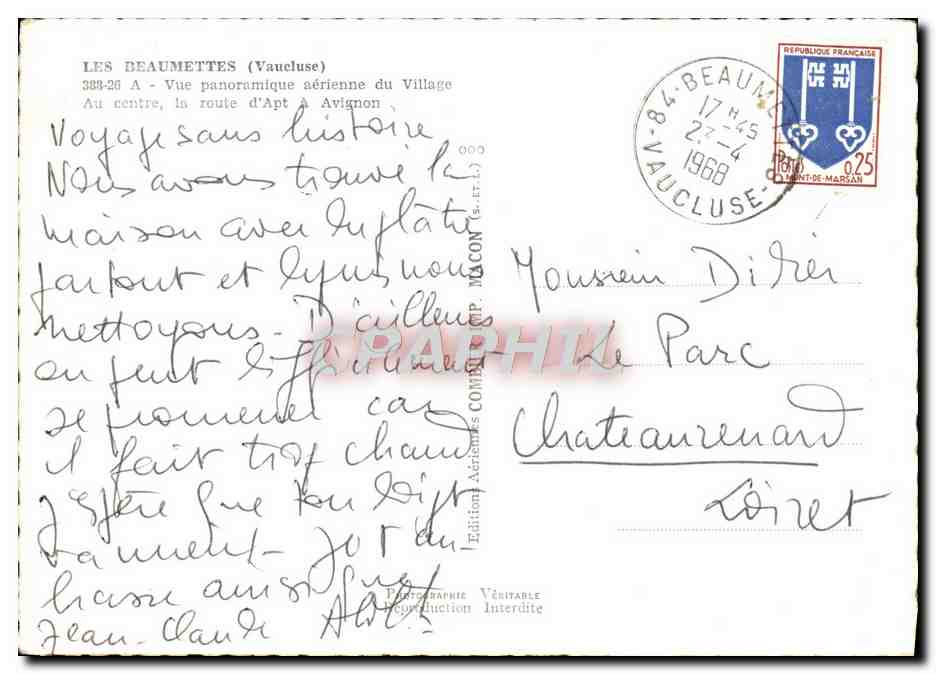 LES BEAUMETTES (Vaucluse)
388-26 A - Vue panoramique aérienne du Village
Au centre, la route d'Apt à Avignon
Voyage sans histoire
Nous avons trouvé la
maison avec du plâtre
partout et nous
nettoyons - D'ailleurs
on peut difficilement
se promener car
il fait trop chaud
J'espère que ton doigt
va mieux - Je t'em-
brasse ainsi que
Jean-Claude
Editions Aériennes COMBIER IMP. MACON (S.-ET-L.)
CPAPHIL
PHOTOGRAPHIE VÉRITABLE
Reproduction Interdite
84-BEAUMETTES
17 H -45
2 -4
1968
VAUCLUSE
REPUBLIQUE FRANÇAISE
0.25
MONT-DE-MARSAN
Monsieur Didier
Le Parc
Chateaurenard
Loiret